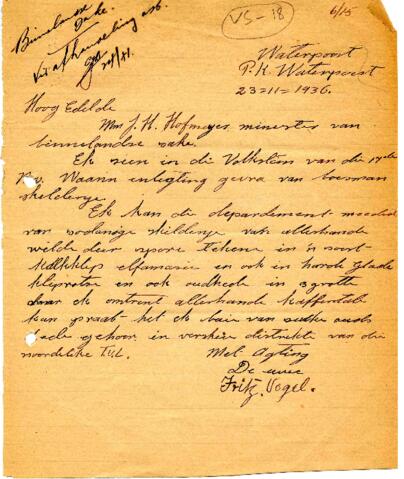 Binnelandse
Sake.
Vir afhandeling asb.
VS-18
6/15
Waterpoort
P.K. Waterpoort
23-11-1936.
Hoog Edelde
Mnr J. H. Hofmeyer minester van
binnelandse sake.
Ek sien in die Volkstem van die
Waarin enligting gevra van boesman
skilderye.
Ek kan die departement
van soodanige skilderye van allerhande
wilde deur spore tekene in n soort
en ook in harde glade
kliprotse en ook oudhede in 3 grotte
daar ek omtrent allerhande kaffertale
kan praat het ek baie van sulke ouds
hede gehoor in verskeie distrikte van die
noordelike Tvl.
Met Agting
De uwe
Fritz Vogel.